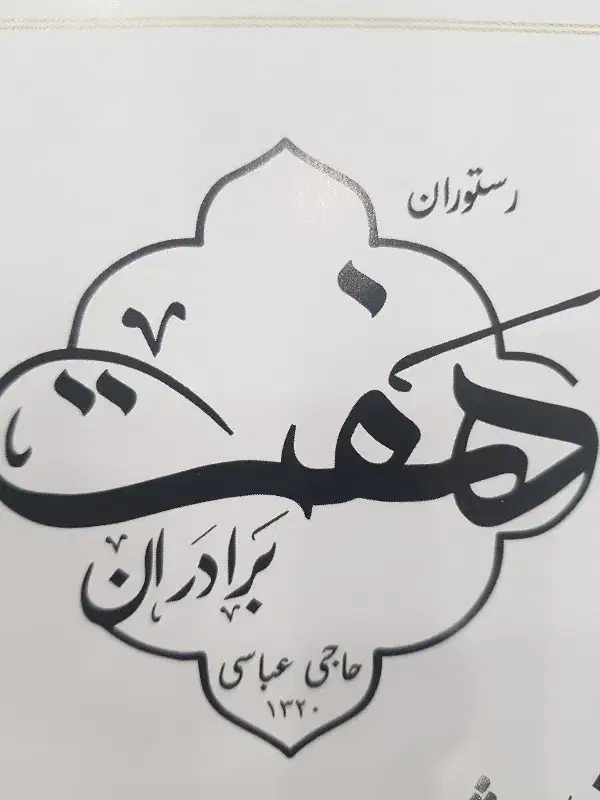 رستوران
هفت
برادران
حاجی عباسی
۱۳۲۰